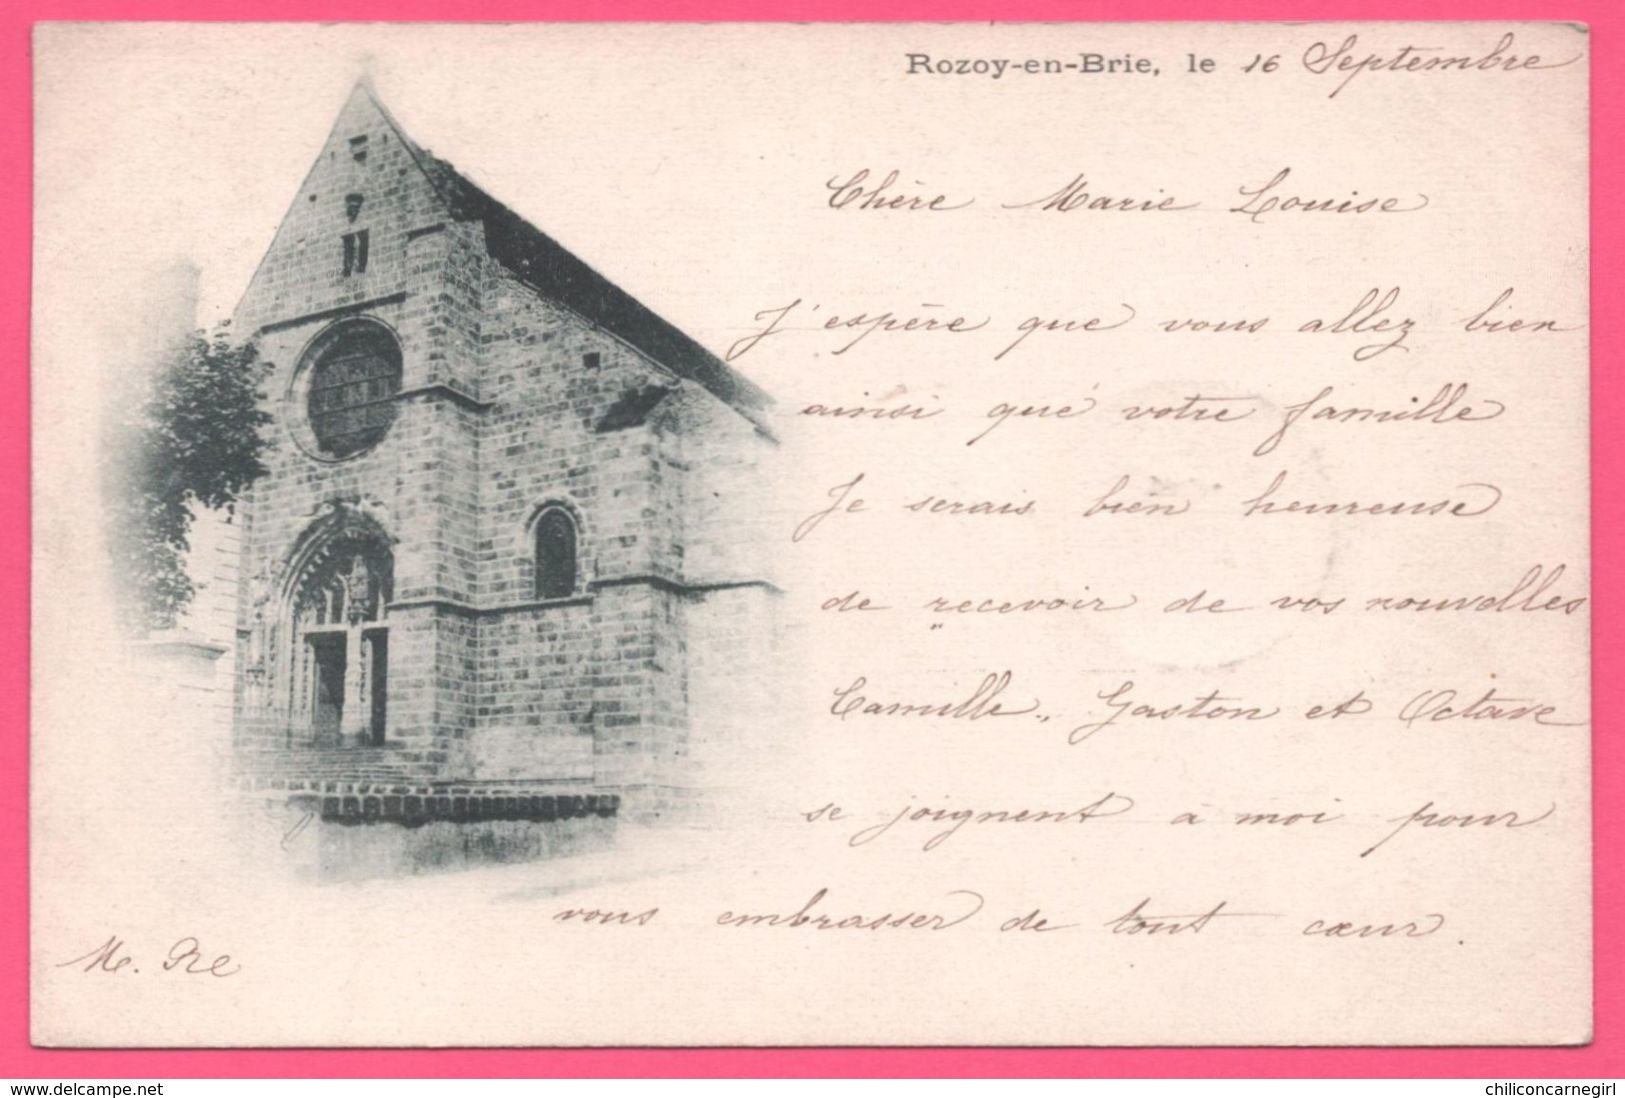 Rozoy-en-Brie, le 16 Septembre
Chère Marie Louise
J'espère que vous allez bien
ainsi que votre famille
Je serais bien heureuse
de recevoir de vos nouvelles
Camille, Gaston et Octave
se joignent à moi pour
vous embrasser de tout cœur.
M.
www.delcampe.net
chiliconcarnegirl